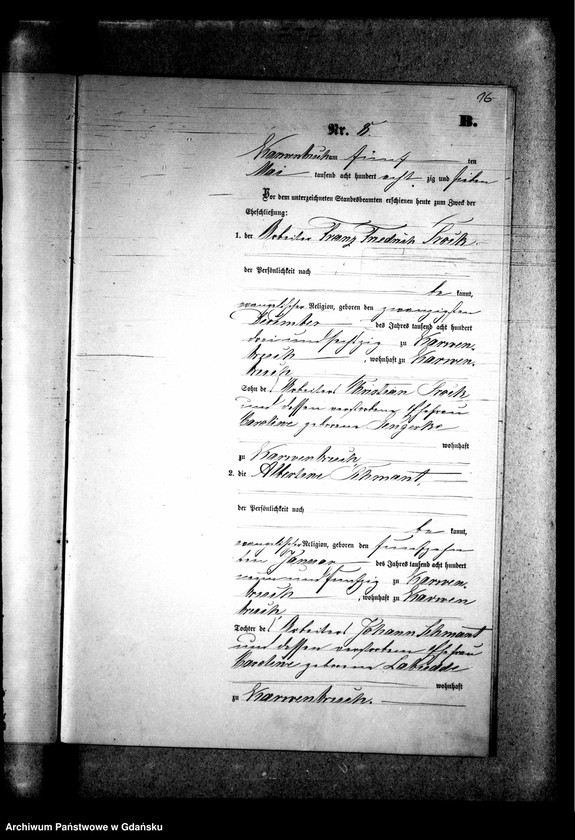 16
B.
Nr. 8.
Karwenbruch am fünf ten
Mai tausend acht hundert acht zig und sieben
Vor dem unterzeichneten Standesbeamten erschienen heute zum Zweck der
Eheschließung:
1. der Arbeiter Franz Friedrich
der Persönlichkeit nach
be kannt,
evangelischer Religion, geboren den zwanzigsten
Dezember des Jahres tausend acht hundert
drei und sechszig zu Karwen-
bruch, wohnhaft zu Karwen-
bruch
Sohn des Arbeiters Christian
und dessen verstorbene Ehefrau
Caroline geborene
wohnhaft
zu Karwenbruch
2. die Albertine Schmant
der Persönlichkeit nach
be kannt,
evangelischer Religion, geboren den fünfzehn
ten Januar des Jahres tausend acht hundert
neun und fünfzig zu Karwen-
bruch, wohnhaft zu Karwen
bruch
Tochter des Arbeiters Johann Schmant
und dessen verstorbene Ehefrau
Caroline geborene Labudde
wohnhaft
zu Karwenbruch.
Archiwum Państwowe w Gdańsku